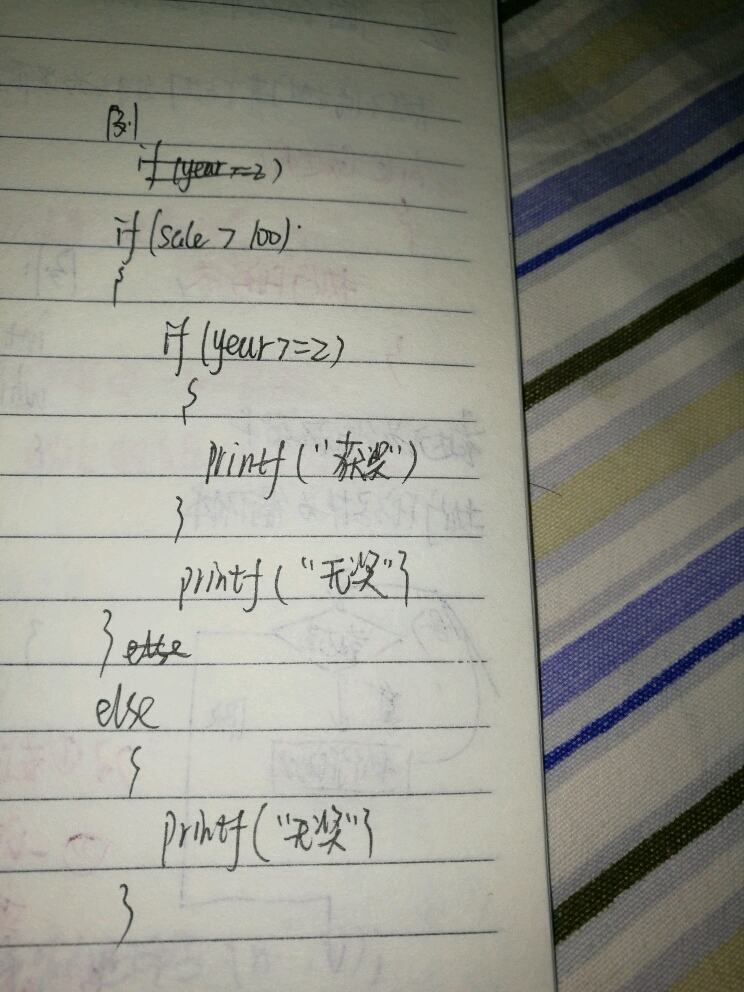 例
if (year >= 2)
if (sale > 100)
{
if (year >= 2)
{
printf ("获奖")
}
printf ("无奖"}
} else
else
{
printf ("无奖"}
}